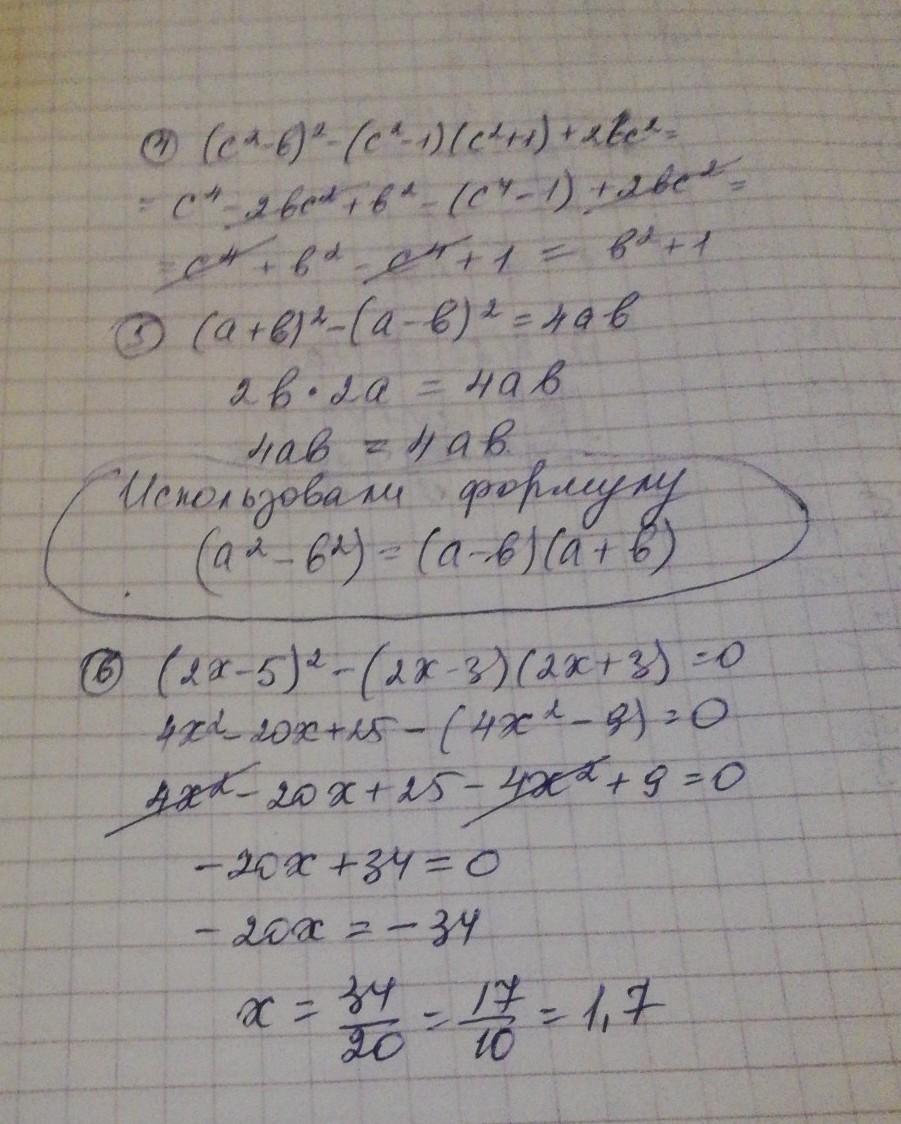 ④ (c²-в)²-(c²-1)(c²+1)+2вc²=
= c⁴-2вc²+в²-(c⁴-1)+2вc²=
= c⁴+в²-c⁴+1 = в²+1
⑤ (a+в)²-(a-в)²=4aв
2в·2a = 4aв
4aв = 4aв.
Использовали формулу
(a²-в²)=(a-в)(a+в)
⑥ (2x-5)²-(2x-3)(2x+3)=0
4x²-20x+25-(4x²-9)=0
4x²-20x+25-4x²+9=0
-20x+34=0
-20x=-34
x = 34/20 = 17/10 = 1,7